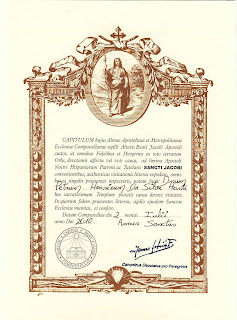 CAPITULUM hujus Almae Apostolicae et Metropolitanae
Ecclesiae Compostellanae sigilli Altaris Beati Jacobi Apostoli
custos, ut omnibus Fidelibus et Peregrinis ex toto terrarum
Orbe, devotionis affectu vel voti causa, ad limina Apostoli
Nostri Hispaniarum Patroni ac Tutelaris SANCTI JACOBI
convenientibus, authenticas visitationis litteras expediat, omni-
bus et singulis praesentes inspecturis, notum facit: Dnum
Petrum Da Silva
hoc sacratissimum Templum pietatis causa devote visitasse.
In quorum fidem praesentes litteras, sigillo ejusdem Sanctae
Ecclesiae munitas, ei confero.
Datum Compostellae die 2 mensis Iulii
anno Dni 2010 Annus Sanctus
Canonicus Deputatus pro Peregrinis